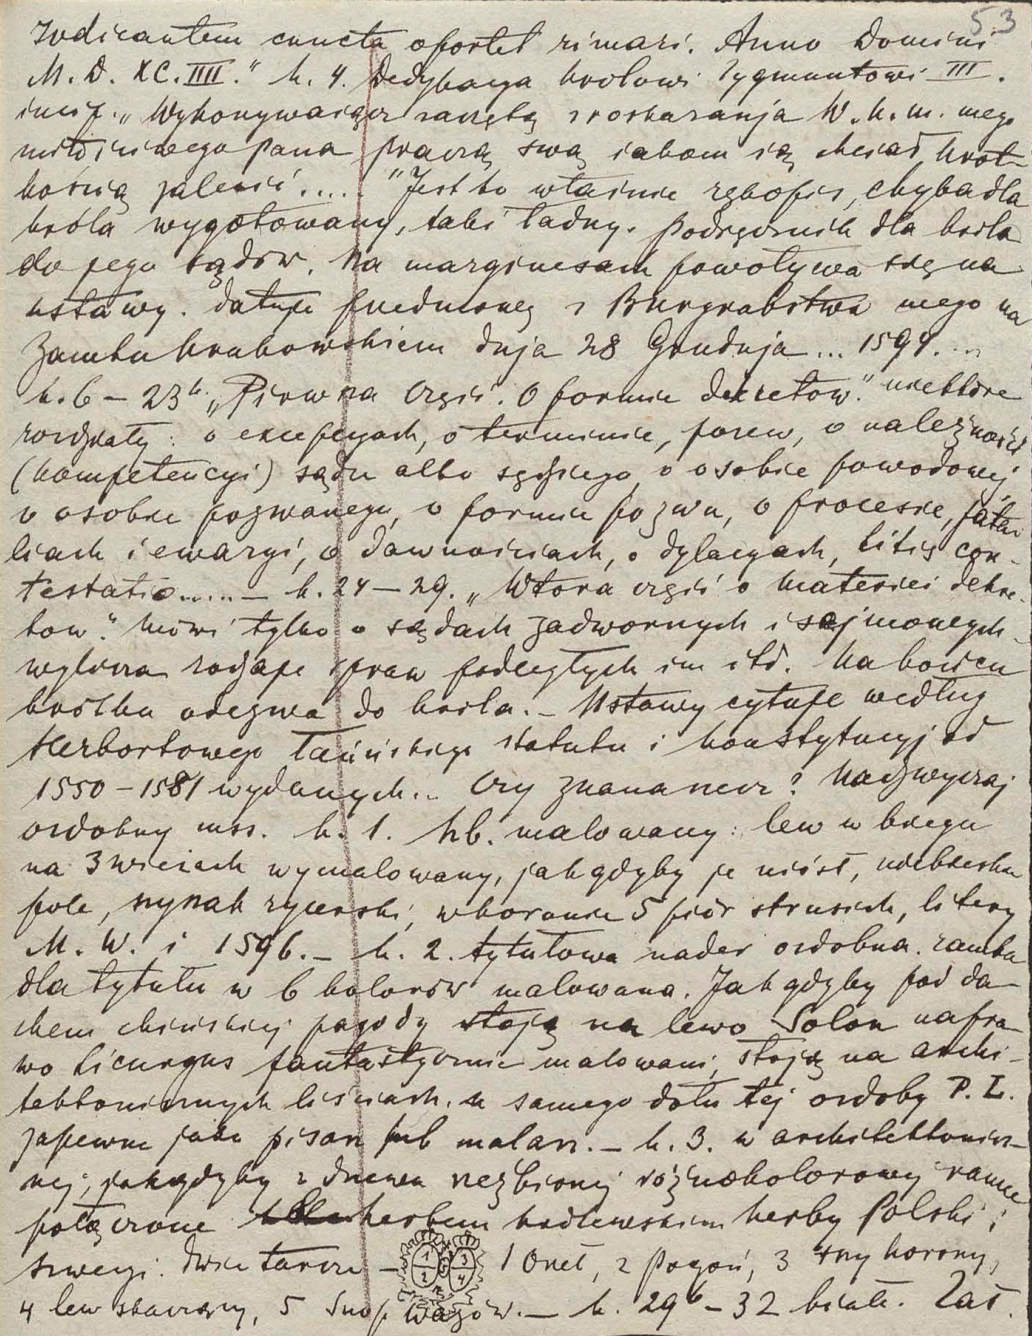 53
Iudicantem cuncta oportet rimari. Anno Domini
M. D. XC. IIII." k. 4. Dedykacya królowi Zygmuntowi III.
"Wykonywaiącz rozkazanja W. k. m. mego
miłościwego pana praczą swą iakom się chciał krot-
kością zalecić.... "Jest to właśnie rękopis, chyba dla
króla wygotowany, taki ładny. Podręcznik dla króla
do jego sądów. Na marginesach powoływa się na
ustawy. Datuje z Burgrabstwa mego na
Zamku krakowskiem dnja 28 Grudnja ... 1594....
k. 6 – 23b „Pirwsza częśc. O formie dekretów."
rozdziały: o excepcyach, o terminie, forem, o należności
(kompetencyi) sądu albo sędziego, o osobie powodowej
o osobie pozwanego, o formie pozwu, o procesie, fata-
liach i ewazyi, o dawnościach, o dylacyach, litis con-
testatio..... – k. 24 – 29. „Wtora częśc o materiei dekre-
tow." Mówi tylko o sądach zadwornych i sejmowych
wylicza rodzaje spraw podległych im itd. Na końcu
krótka odezwa do króla. – Ustawy cytuje według
Herbortowego łacińskiego statutu i konstytucyj od
1550 – 1581 wydanych.. Czy znana rzecz? Nadzwyczaj
ozdobny mss. k. 1. hb. malowany: lew w biegu
na 3 wieżach wymalowany, jak gdyby je niósł, niebieskie
pole, szyszak rycerski, w koronie 5 piór strusich, litery
M. W. i 1596. – k. 2. tytułowa nader ozdobna. ramka
dla tytułu w 6 kolorów malowana. Jak gdyby pod da-
chem chińskiej pagody stoją na lewo Solon na pra-
wo Licurgus fantastycznie malowani, stoją na archi-
tektonicznych liściach. u samego dołu tej ozdoby P. L.
zapewne jako pisarz lub malarz. – k. 3. w architektonicz-
nej, jakgdyby z drzewa rzeźbionej różnokolorowej ramce
połączone herbem królewskim herby Polski i
Szwecyi. Dwie tarcze – 1 Orzeł, 2 Pogoń, 3 trzy korony,
4 lew skaczący, 5 Snop Wazów. – k. 29b – 32 białe. Zaś